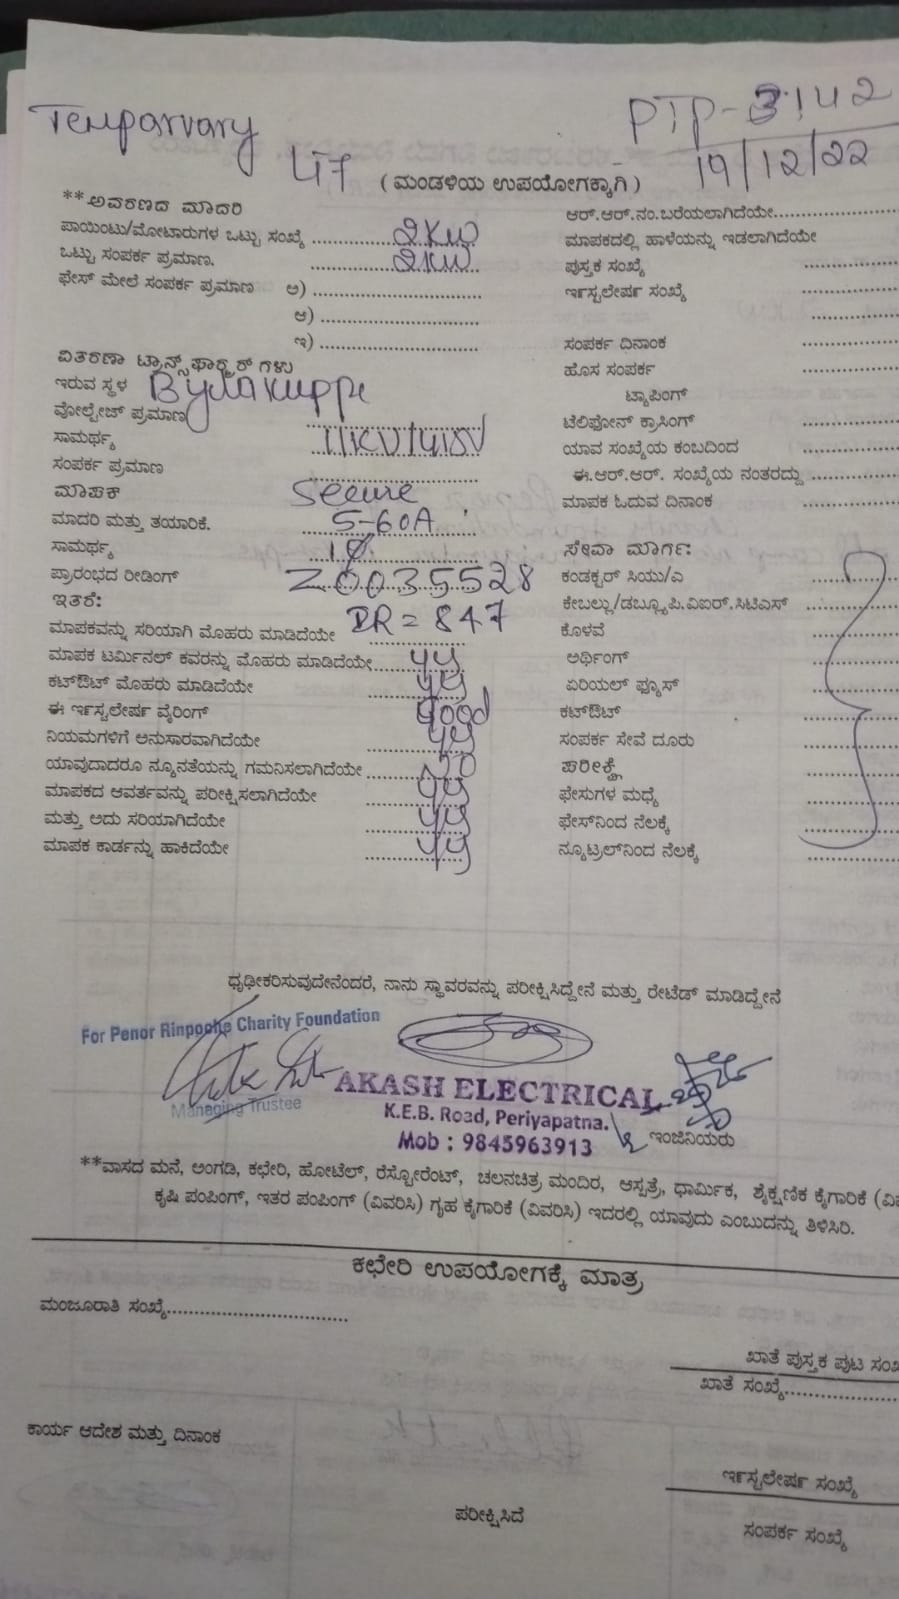 Temparvary
PTP-3142
19/12/22
LT7
(ಮಂಡಳಿಯ ಉಪಯೋಗಕ್ಕಾಗಿ)
**ಅವರಣದ ಮಾದರಿ
ಪಾಯಿಂಟು/ಮೋಟಾರುಗಳ ಒಟ್ಟು ಸಂಖ್ಯೆ 2KW
ಒಟ್ಟು ಸಂಪರ್ಕ ಪ್ರಮಾಣ. 2KW
ಫೇಸ್ ಮೇಲೆ ಸಂಪರ್ಕ ಪ್ರಮಾಣ ಅ)
ಆ)
ಇ)
ವಿತರಣಾ ಟ್ರಾನ್ಸ್‌ಫಾರ್ಮರ್ ಗಳು
ಇರುವ ಸ್ಥಳ Bylakuppe
ವೋಲ್ಟೇಜ್ ಪ್ರಮಾಣ
ಸಾಮರ್ಥ್ಯ 11KV/415V
ಸಂಪರ್ಕ ಪ್ರಮಾಣ
ಮಾಪಕ Secure
ಮಾದರಿ ಮತ್ತು ತಯಾರಿಕೆ. 5-60A
ಸಾಮರ್ಥ್ಯ 1Ø
ಪ್ರಾರಂಭದ ರೀಡಿಂಗ್ Z0035528
ಇತರೆ: IR = 847
ಮಾಪಕವನ್ನು ಸರಿಯಾಗಿ ಮೊಹರು ಮಾಡಿದೆಯೇ
ಮಾಪಕ ಟರ್ಮಿನಲ್ ಕವರನ್ನು ಮೊಹರು ಮಾಡಿದೆಯೇ
ಕಟ್‌ಔಟ್ ಮೊಹರು ಮಾಡಿದೆಯೇ
ಈ ಇನ್‌ಸ್ಟಲೇಷನ್ ವೈರಿಂಗ್ Good
ನಿಯಮಗಳಿಗೆ ಅನುಸಾರವಾಗಿದೆಯೇ
ಯಾವುದಾದರೂ ನ್ಯೂನತೆಯನ್ನು ಗಮನಿಸಲಾಗಿದೆಯೇ No
ಮಾಪಕದ ಆವರ್ತವನ್ನು ಪರೀಕ್ಷಿಸಲಾಗಿದೆಯೇ
ಮತ್ತು ಅದು ಸರಿಯಾಗಿದೆಯೇ
ಮಾಪಕ ಕಾರ್ಡನ್ನು ಹಾಕಿದೆಯೇ
ಆರ್.ಆರ್.ನಂ.ಬರೆಯಲಾಗಿದೆಯೇ
ಮಾಪಕದಲ್ಲಿ ಹಾಳೆಯನ್ನು ಇಡಲಾಗಿದೆಯೇ
ಪುಸ್ತಕ ಸಂಖ್ಯೆ
ಇನ್‌ಸ್ಟಲೇಷನ್ ಸಂಖ್ಯೆ
ಸಂಪರ್ಕ ದಿನಾಂಕ
ಹೊಸ ಸಂಪರ್ಕ
ಟ್ಯಾಪಿಂಗ್
ಟೆಲಿಫೋನ್ ಕ್ರಾಸಿಂಗ್
ಯಾವ ಸಂಖ್ಯೆಯ ಕಂಬದಿಂದ
ಈ.ಆರ್.ಆರ್. ಸಂಖ್ಯೆಯ ನಂತರದ್ದು
ಮಾಪಕ ಓದುವ ದಿನಾಂಕ
ಸೇವಾ ಮಾರ್ಗ:
ಕಂಡಕ್ಟರ್ ಸಿಯು/ಎ
ಕೇಬಲ್ಲು/ಡಬ್ಲ್ಯೂ.ಪಿ.ವಿಐಆರ್.ಸಿಟಿಎಸ್
ಕೊಳವೆ
ಅರ್ಥಿಂಗ್
ಏರಿಯಲ್ ಫ್ಯೂಸ್
ಕಟ್‌ಔಟ್
ಸಂಪರ್ಕ ಸೇವೆ ದೂರು
ಪರೀಕ್ಷೆ
ಫೇಸುಗಳ ಮಧ್ಯೆ
ಫೇಸ್‌ನಿಂದ ನೆಲಕ್ಕೆ
ನ್ಯೂಟ್ರಲ್‌ನಿಂದ ನೆಲಕ್ಕೆ
ಧೃಢೀಕರಿಸುವುದೇನೆಂದರೆ, ನಾನು ಸ್ಥಾವರವನ್ನು ಪರೀಕ್ಷಿಸಿದ್ದೇನೆ ಮತ್ತು ರೇಟೆಡ್ ಮಾಡಿದ್ದೇನೆ
For Penor Rinpoche Charity Foundation
Managing Trustee
AKASH ELECTRICAL
K.E.B. Road, Periyapatna.
Mob : 9845963913
ಇಂಜಿನಿಯರು
**ವಾಸದ ಮನೆ, ಅಂಗಡಿ, ಕಛೇರಿ, ಹೋಟೆಲ್, ರೆಸ್ಟೋರೆಂಟ್, ಚಲನಚಿತ್ರ ಮಂದಿರ, ಆಸ್ಪತ್ರೆ, ಧಾರ್ಮಿಕ, ಶೈಕ್ಷಣಿಕ ಕೈಗಾರಿಕೆ
ಕೃಷಿ ಪಂಪಿಂಗ್, ಇತರ ಪಂಪಿಂಗ್ (ವಿವರಿಸಿ) ಗೃಹ ಕೈಗಾರಿಕೆ (ವಿವರಿಸಿ) ಇದರಲ್ಲಿ ಯಾವುದು ಎಂಬುದನ್ನು ತಿಳಿಸಿರಿ.
ಕಛೇರಿ ಉಪಯೋಗಕ್ಕೆ ಮಾತ್ರ
ಮಂಜೂರಾತಿ ಸಂಖ್ಯೆ
ಖಾತೆ ಪುಸ್ತಕ ಪುಟ
ಖಾತೆ ಸಂಖ್ಯೆ
ಕಾರ್ಯ ಆದೇಶ ಮತ್ತು ದಿನಾಂಕ
ಇನ್‌ಸ್ಟಲೇಷನ್ ಸಂಖ್ಯೆ
ಪರೀಕ್ಷಿಸಿದೆ
ಸಂಪರ್ಕ ಸಂಖ್ಯೆ